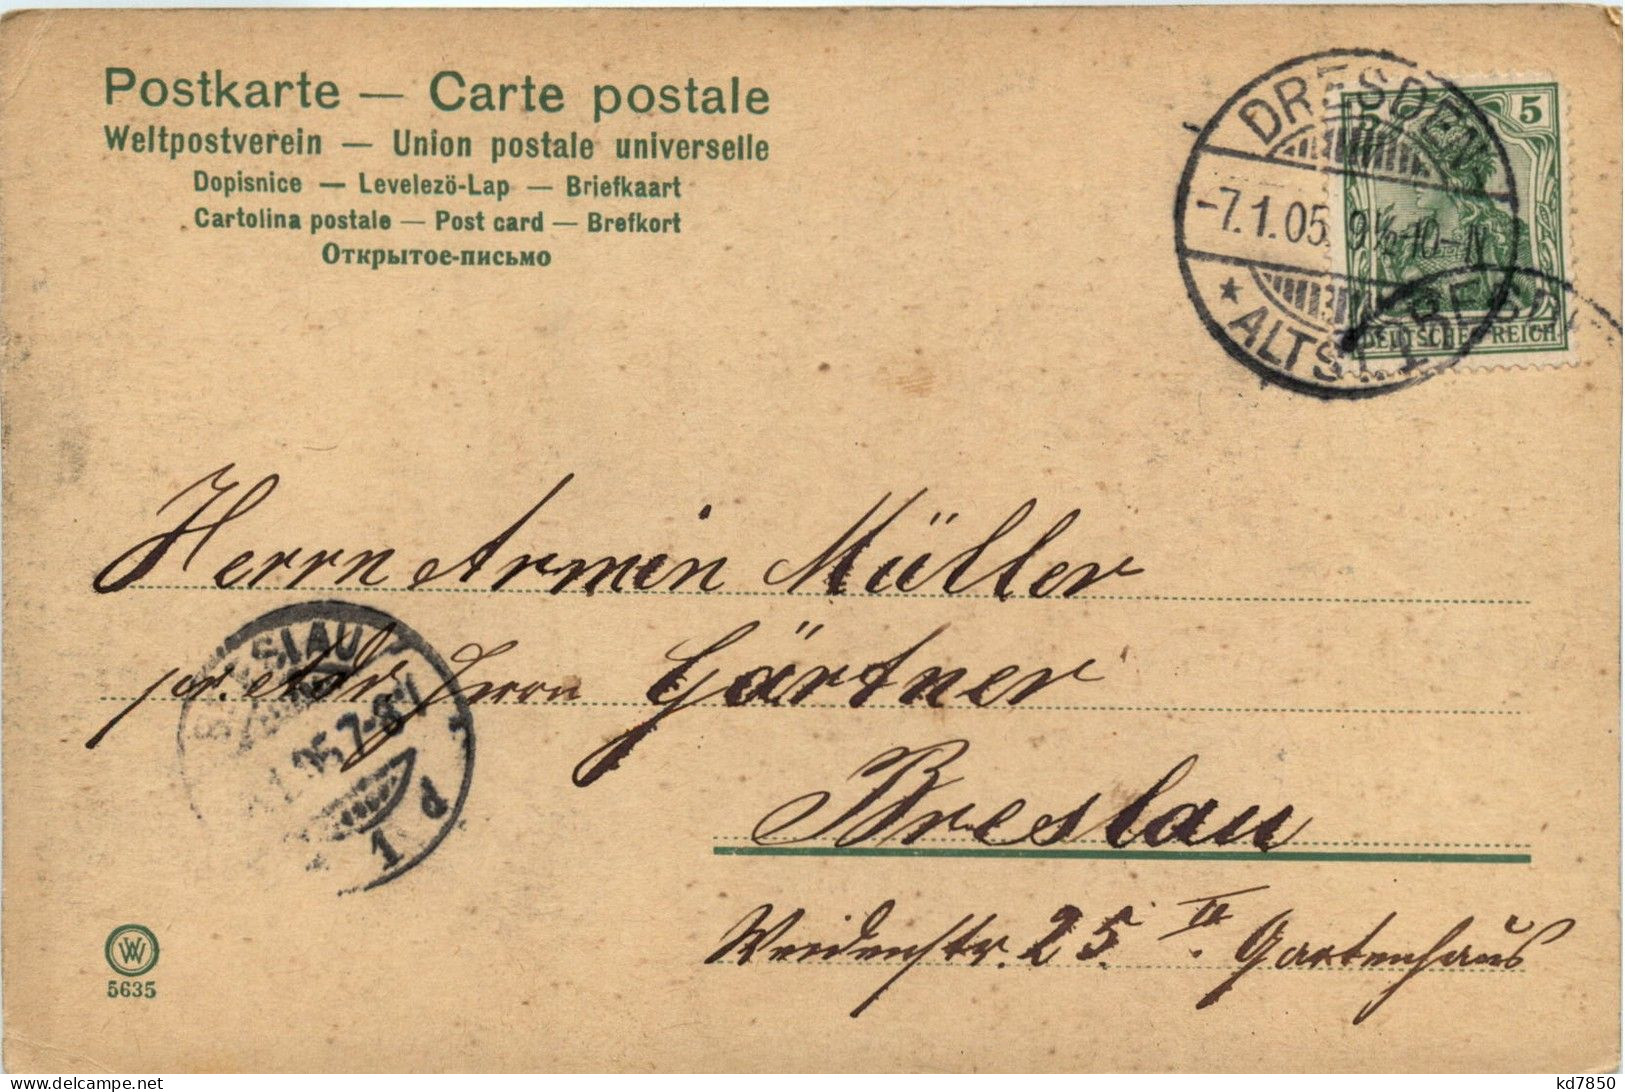 Postkarte — Carte postale
Weltpostverein — Union postale universelle
Dopisnice — Levelezö-Lap — Briefkaart
Cartolina postale — Post card — Brefkort
Открытое-письмо
DRESDEN
-7.1.05. 9½-10-N
* ALTST. 1
5
DEUTSCHES REICH
Herrn Armin Müller
pr. Adr. Herrn Gärtner
Breslau
Weidenstr. 25. II. Gartenhaus
BRESLAU
1.05.7-8V
1 d
WW
5635
kd7850